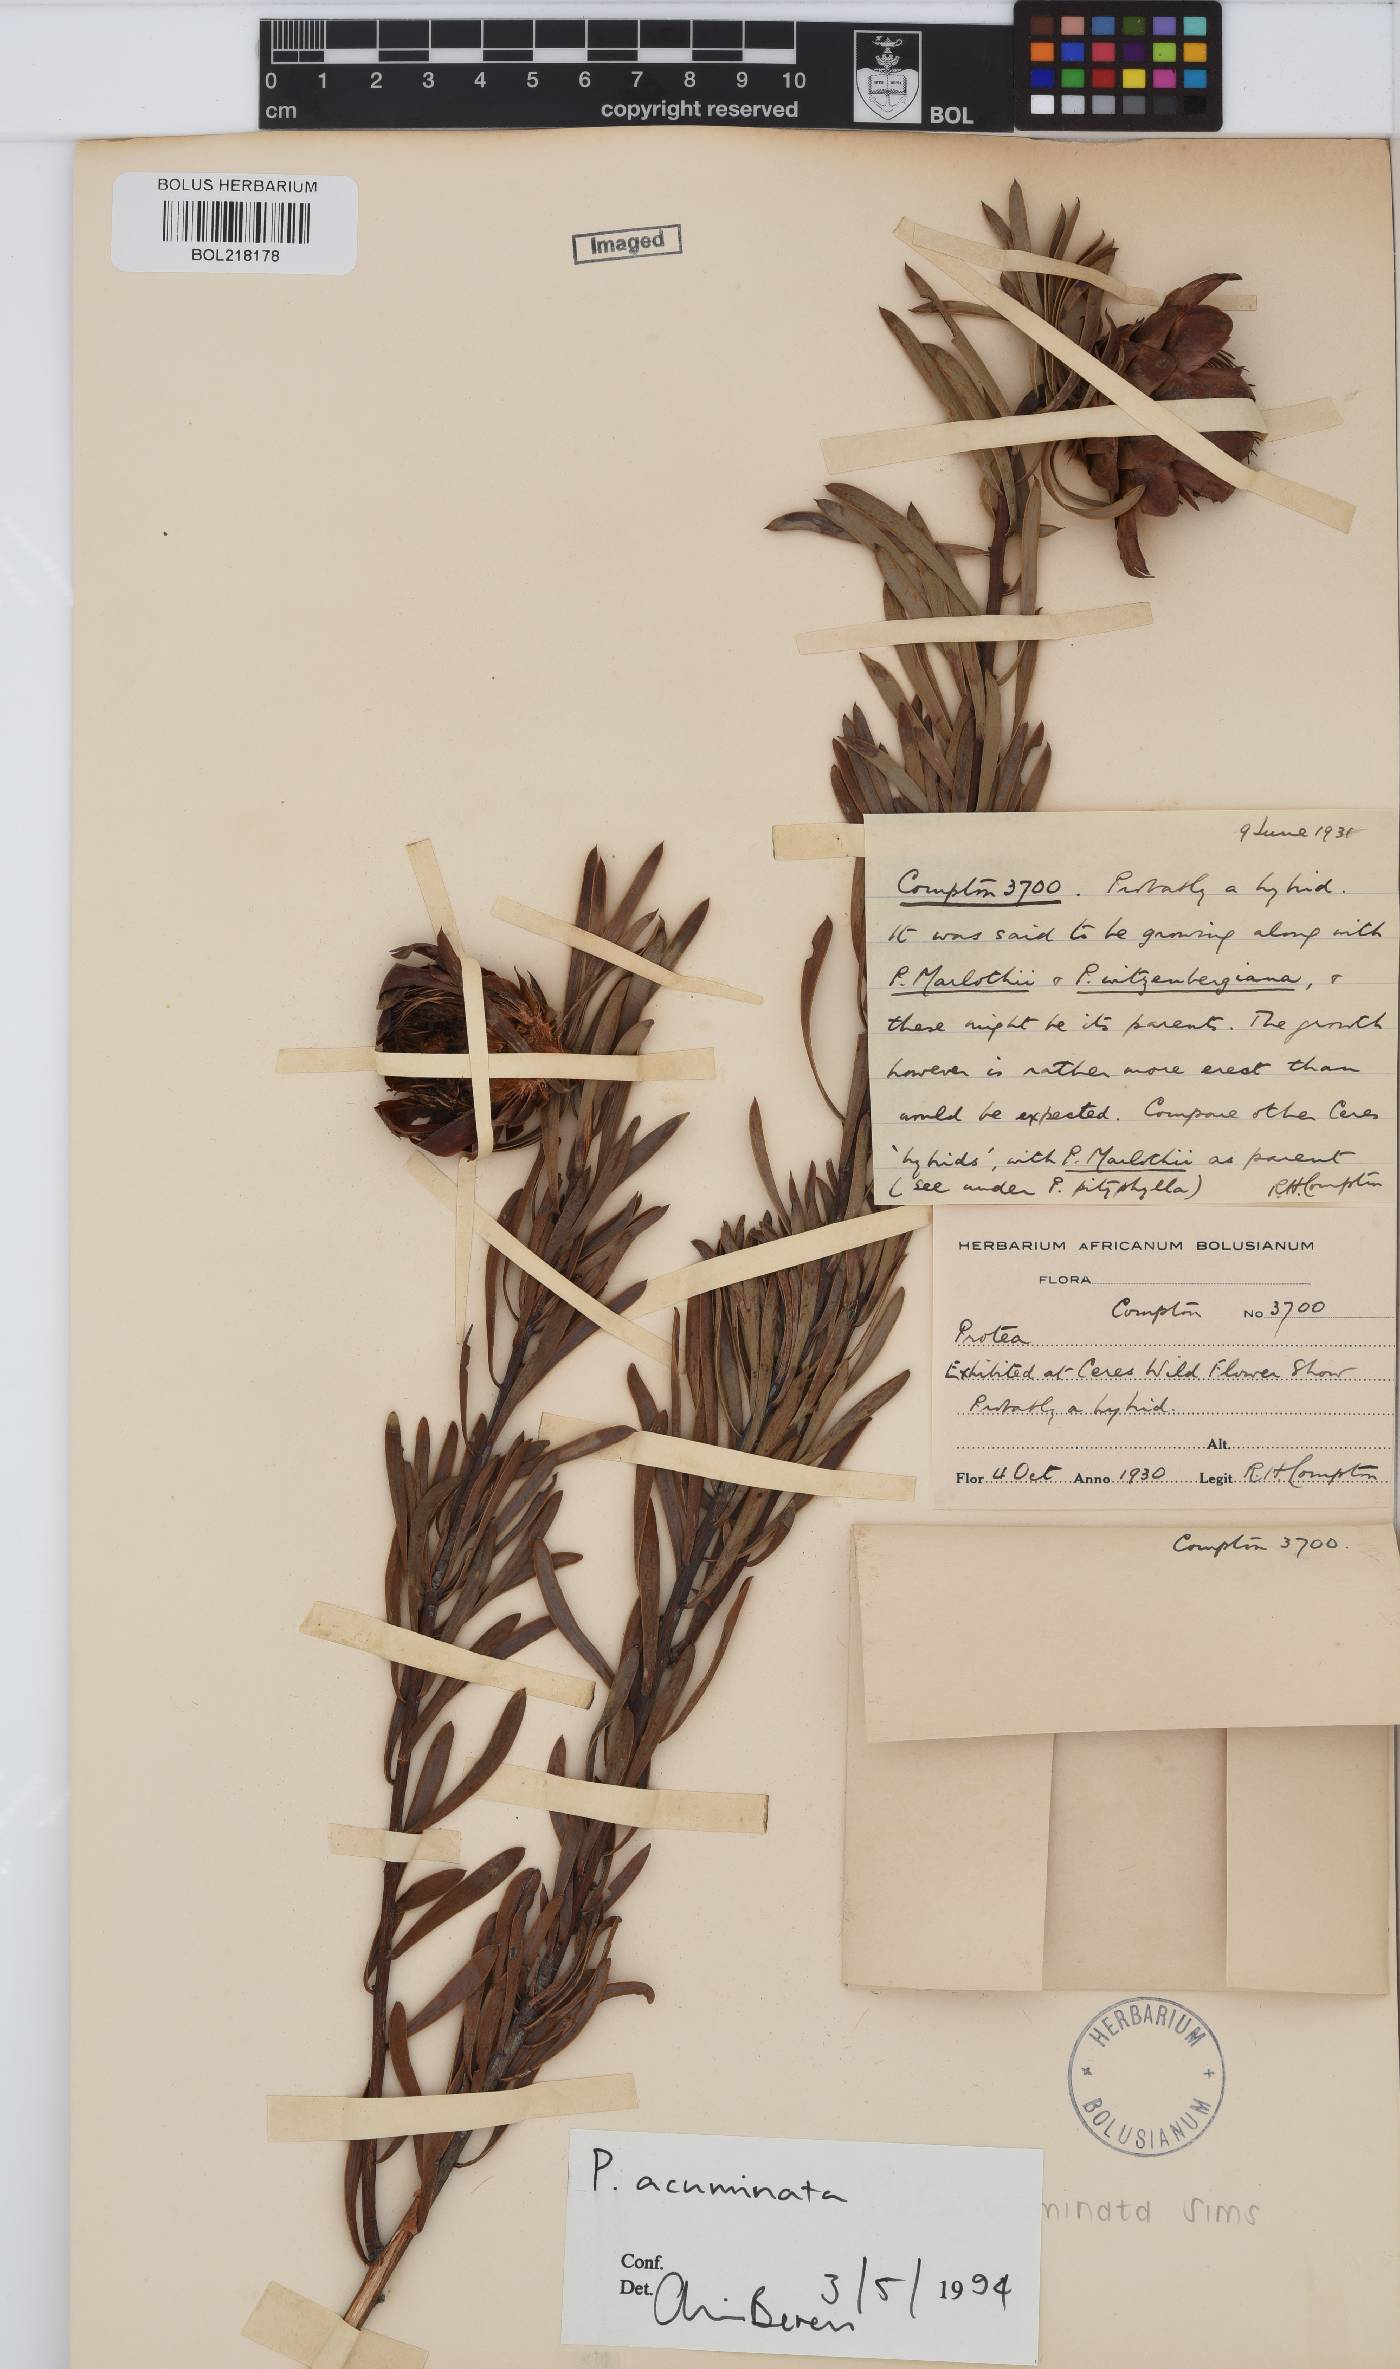 0 1 2 3 4 5 6 7 8 9 10
cm
copyright reserved
BOL
BOLUS HERBARIUM
BOL218178
Imaged
9 June 1931
Compton 3700. Probably a hybrid.
It was said to be growing along with
P. Marlothii & P. witzenbergiana, &
these might be its parents. The growth
however is rather more erect than
would be expected. Compare other Ceres
'hybrids', with P. Marlothii as parent
(see under P. pityphylla) R.H. Compton
HERBARIUM AFRICANUM BOLUSIANUM
FLORA
Compton No 3700
Protea
Exhibited at Ceres Wild Flower Show
Probably a hybrid.
Alt.
Flor 4 Oct Anno 1930 Legit R.H. Compton
Compton 3700.
HERBARIUM
BOLUSIANUM
minata Sims
P. acuminata
Conf.
Det. 3/5/1994